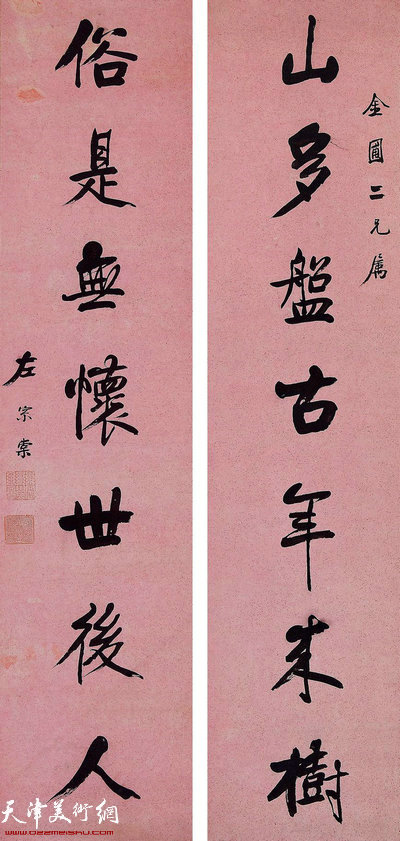 金圃二兄属
山多盤古年来樹
俗是無懷世後人
左宗棠
天津美術網
www.022meishu.com